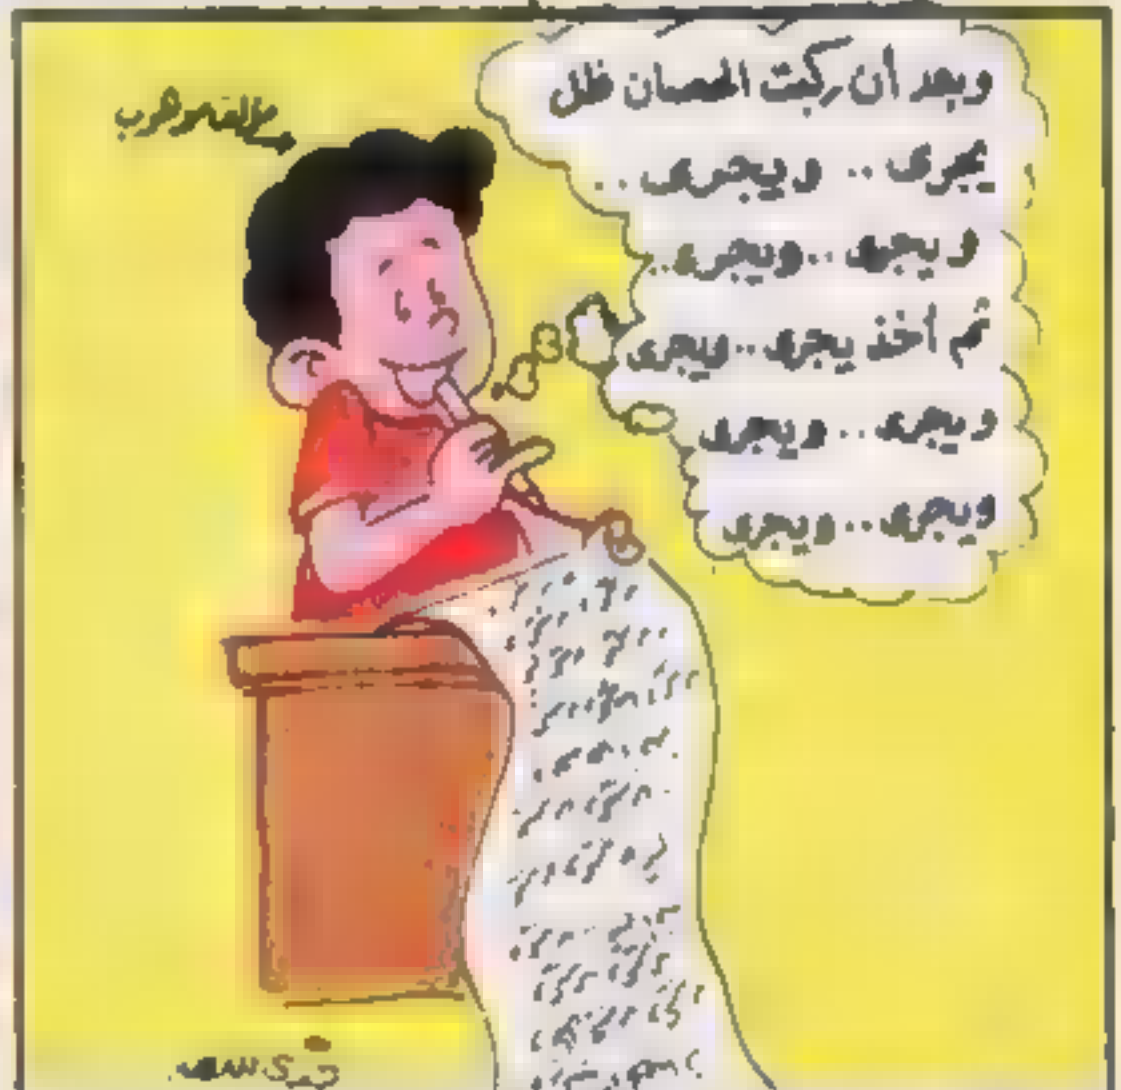 وبعد أن ركبت الحصان ظل
يجرى .. ويجرى ..
ويجرى .. ويجرى ..
ثم أخذ يجرى .. ويجرى
ويجرى .. ويجرى
ويجرى .. ويجرى
موهوب